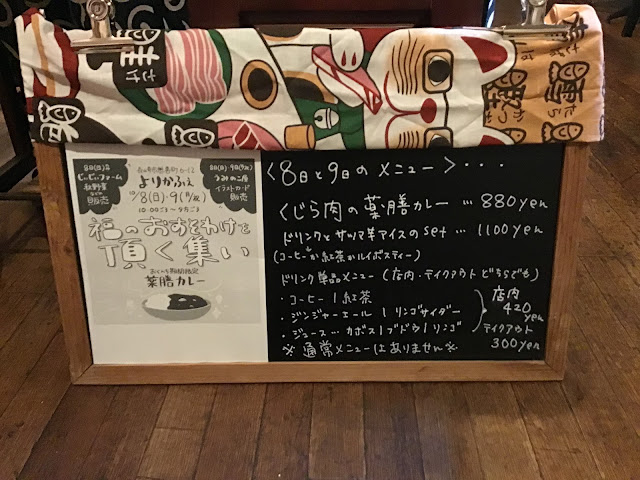 さけ
鮭
たら
鱈
かつお
鰹
8日(日)は
ビービーファーム
秋野菜
などの
販売
よりかふぇ
10/8(日)・9(月/祝)
10:00ごろ〜夕方ごろ
8日(日)・9日(月/祝)
うみのこ屋
イラストカード
販売
福のおすそわけを
頂く集い
薬膳カレー
〈8日と9日のメニュー〉・・・
くじら肉の薬膳カレー … 880yen
ドリンクとサツマ芋アイスのset … 1100yen
(コーヒーか紅茶かルイボスティー)
ドリンク単品メニュー(店内・テイクアウトどちらでも)
・コーヒー/紅茶
・ジンジャーエール/リンゴサイダー
・ジュース…カボス/ブドウ/リンゴ
店内
420
yen
テイクアウト
300yen
※通常メニューはありません※